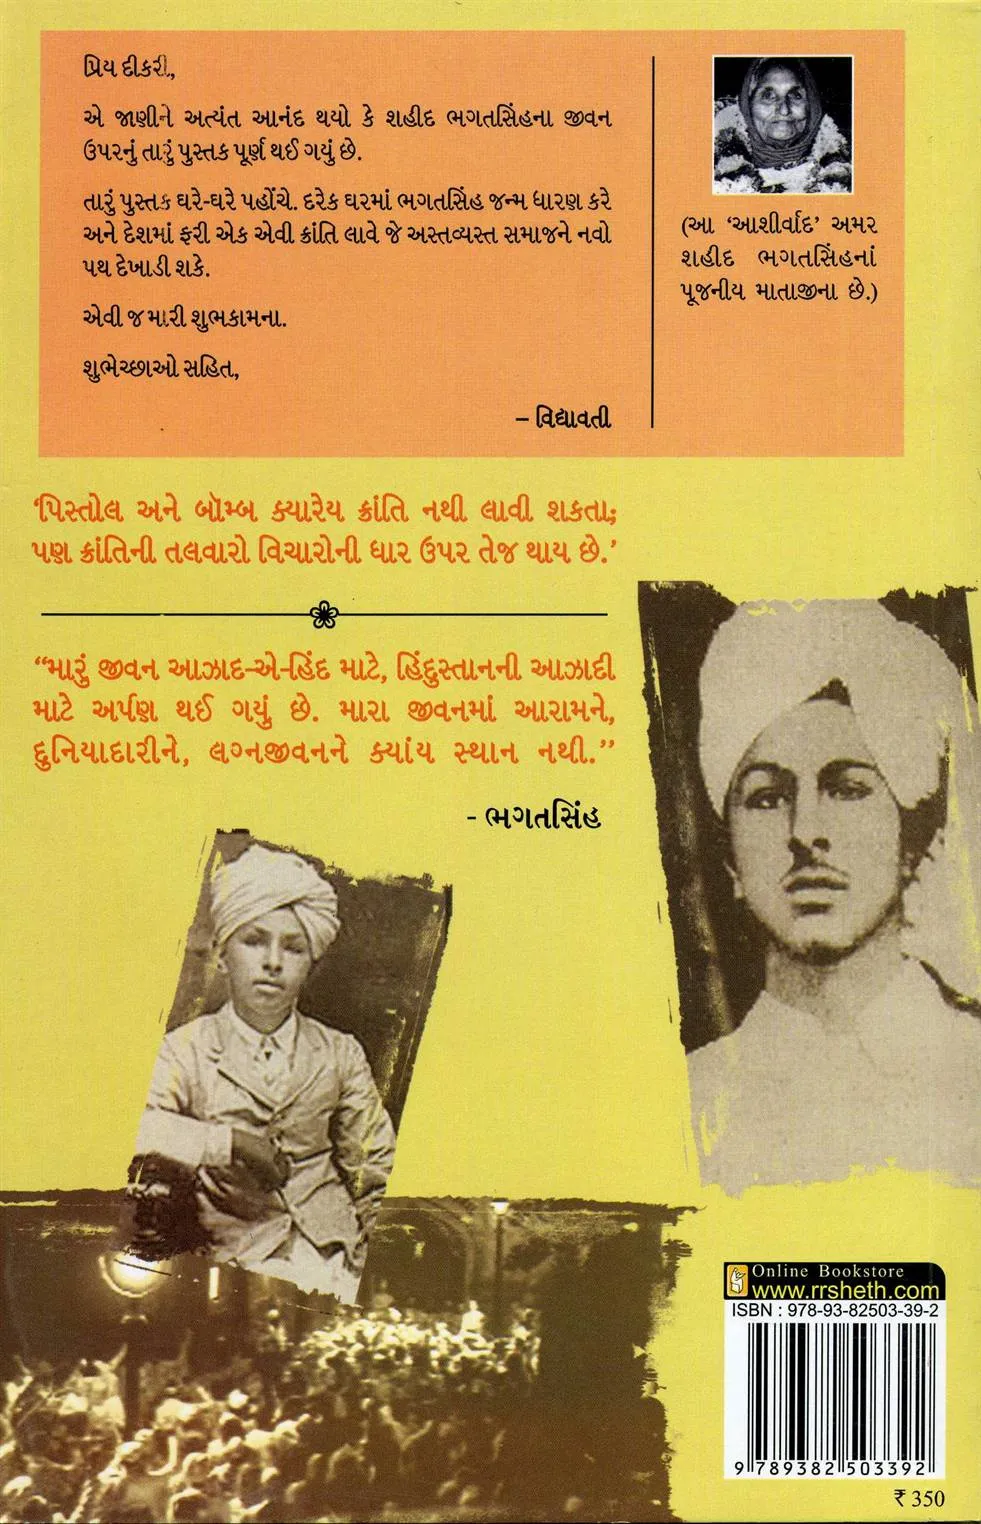 પ્રિય દીકરી,
એ જાણીને અત્યંત આનંદ થયો કે શહીદ ભગતસિંહના જીવન
ઉપરનું તારું પુસ્તક પૂર્ણ થઈ ગયું છે.
તારું પુસ્તક ઘરે-ઘરે પહોંચે. દરેક ઘરમાં ભગતસિંહ જન્મ ધારણ કરે
અને દેશમાં ફરી એક એવી ક્રાંતિ લાવે જે અસ્તવ્યસ્ત સમાજને નવો
પથ દેખાડી શકે.
એવી જ મારી શુભકામના.
શુભેચ્છાઓ સહિત,
– વિદ્યાવતી
(આ ‘આશીર્વાદ’ અમર
શહીદ ભગતસિંહનાં
પૂજનીય માતાજીના છે.)
‘પિસ્તોલ અને બૉમ્બ ક્યારેય ક્રાંતિ નથી લાવી શકતા;
પણ ક્રાંતિની તલવારો વિચારોની ધાર ઉપર તેજ થાય છે.’
“મારું જીવન આઝાદ-એ-હિંદ માટે, હિંદુસ્તાનની આઝાદી
માટે અર્પણ થઈ ગયું છે. મારા જીવનમાં આરામને,
દુનિયાદારીને, લગ્નજીવનને ક્યાંય સ્થાન નથી.”
- ભગતસિંહ
Online Bookstore
www.rrsheth.com
ISBN : 978-93-82503-39-2
9 789382 503392
₹ 350